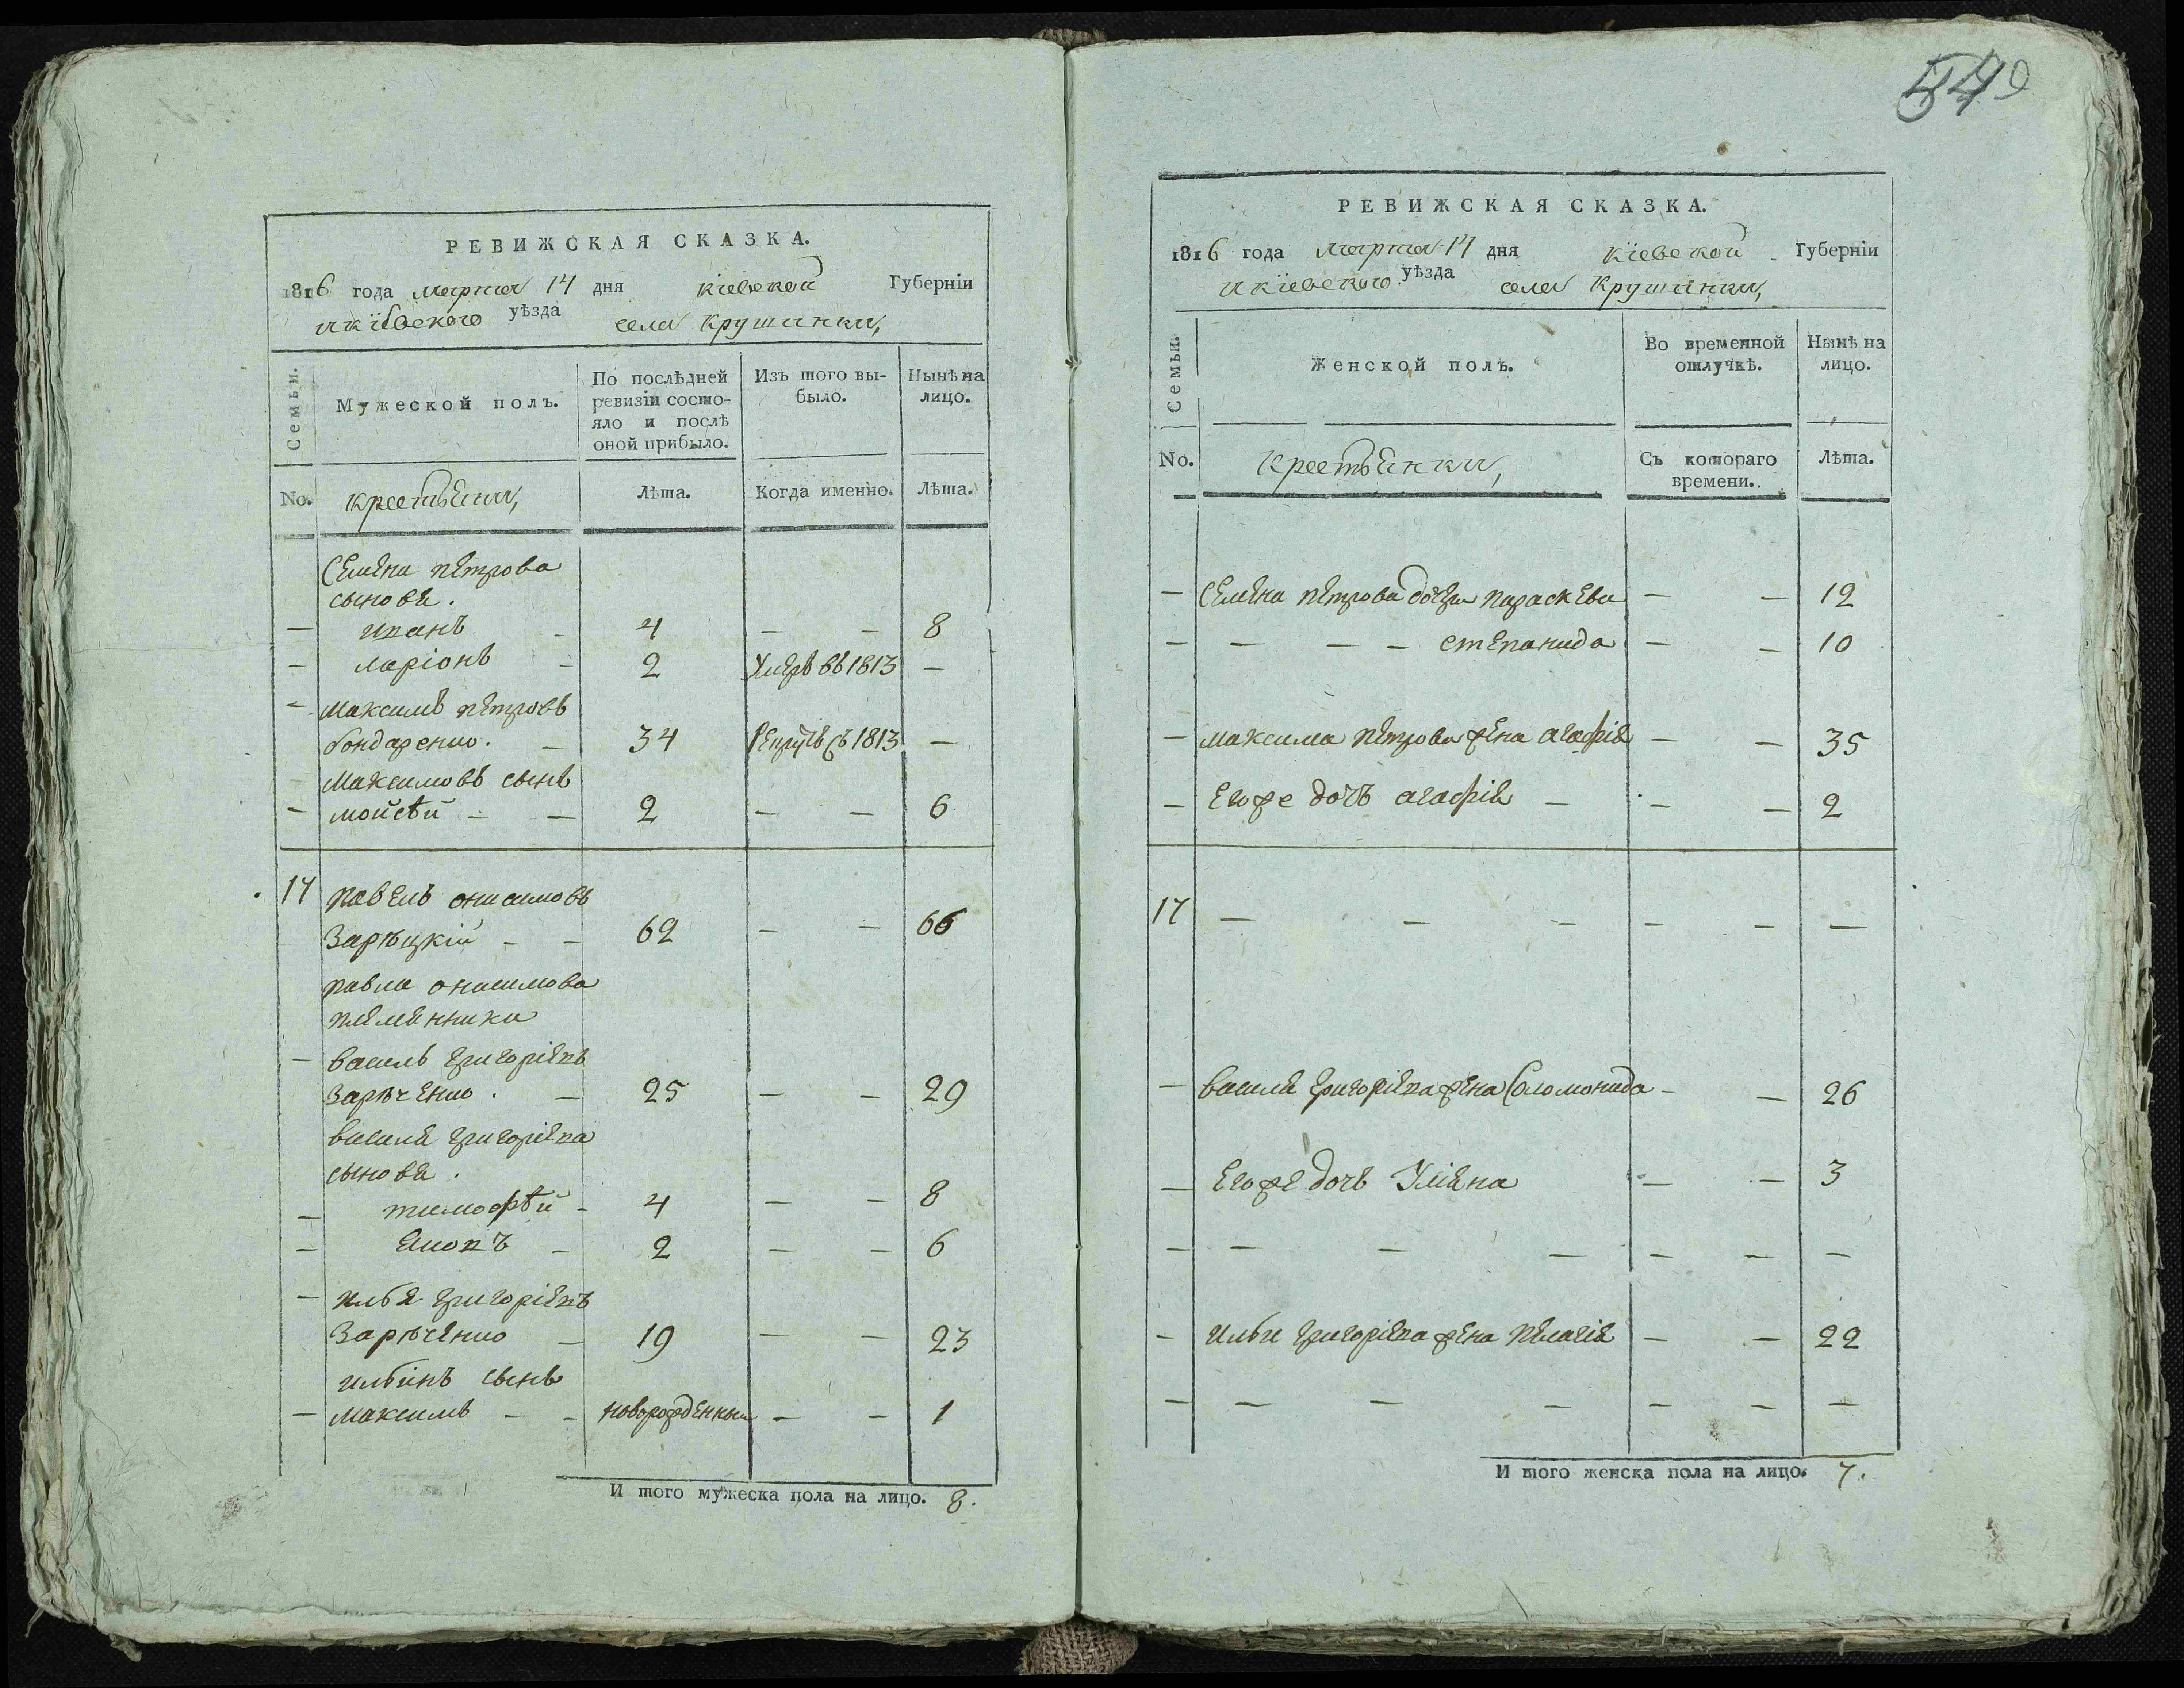 РЕВИЖСКАЯ СКАЗКА.
1816 года марта 14 дня кіевской Губерніи
и кіевского уѣзда села Крушинки,
Семьи.
Мужеской полъ.
По послѣдней ревизіи состояло и послѣ оной прибыло.
Изъ того выбыло.
Нынѣ на лицо.
No. крестьяни, Лѣта. Когда именно. Лѣта.
Семена петрова
сыновя.
— иванъ - 4 — — 8
— ларіонъ - 2 Умеръ въ 1813 —
— максимъ петровъ
бондаренко. — 34 Рекрутъ съ 1813 —
максимовъ сынъ
— мойсѣй — — 2 — — 6
17 павелъ онисимовъ
Зарѣцкій — — 62 — — 66
павла онисимова
племянники
— василь григоріевъ
зарѣченко. — 25 — — 29
василя григоріева
сыновя.
— тимофѣй - 4 — — 8
— яковъ — 2 — — 6
— илья григоріевъ
Зарѣченко — 19 — — 23
ильинъ сынъ
— максимъ - - новорожденный — — 1
И того мужеска пола на лицо. 8.
549
РЕВИЖСКАЯ СКАЗКА.
1816 года марта 14 дня кіевской Губерніи
и кіевского уѣзда села Крушинки,
Семьи.
Женской полъ.
Во временной отлучкѣ.
Нынѣ на лицо.
No. крестьянки, Съ котораго времени. Лѣта.
— Семена петрова дочери параскева — — 12
— — — — степанида — — 10
— максима петрова жена агафія — — 35
— его же дочъ агафія — — — 2
17 — — — — — —
— василя григоріева жена Соломонида — — 26
— его же дочь Уліяна — — 3
— — — — — — —
— ильи григоріева жена пелагія — — 22
— — — — — — —
И того женска пола на лицо. 7.